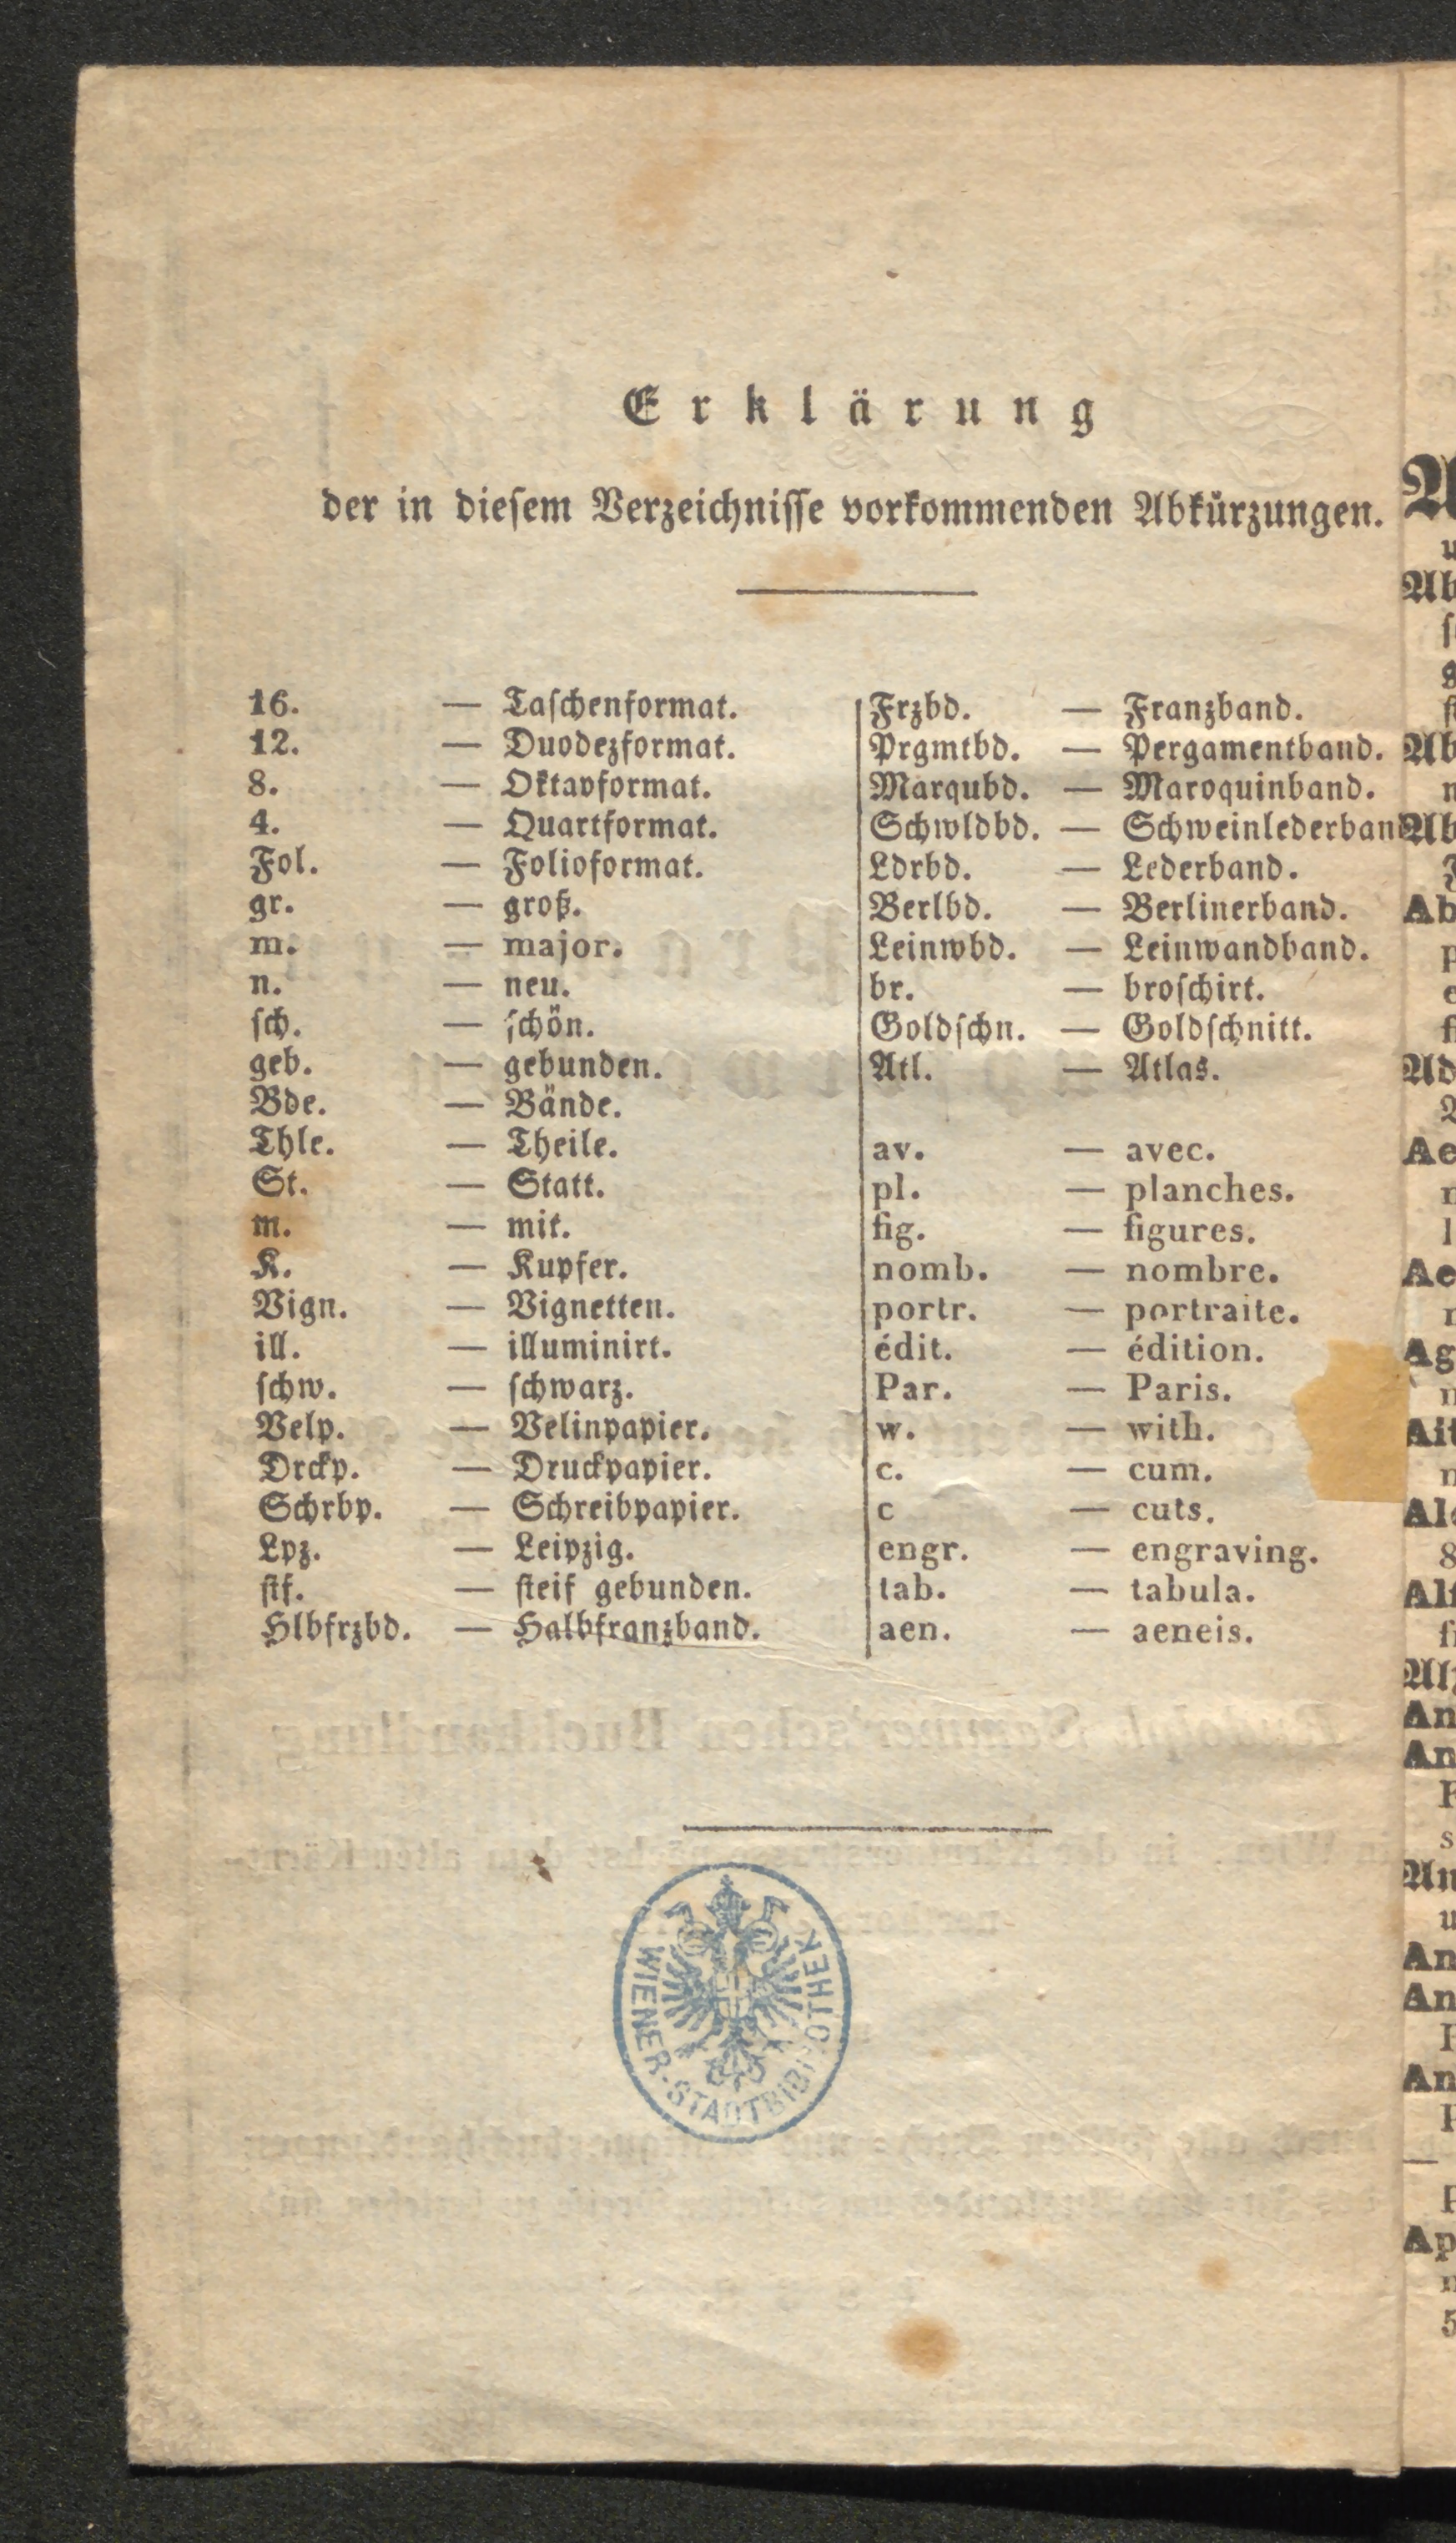 Erklärung
der in diesem Verzeichnisse vorkommenden Abkürzungen.
16. — Taschenformat.
12. — Duodezformat.
8. — Oktavformat.
4. — Quartformat.
Fol. — Folioformat.
gr. — groß.
m. — major.
n. — neu.
sch. — schön.
geb. — gebunden.
Bde. — Bände.
Thle. — Theile.
St. — Statt.
m. — mit.
K. — Kupfer.
Vign. — Vignetten.
ill. — illuminirt.
schw. — schwarz.
Velp. — Velinpapier.
Drckp. — Druckpapier.
Schrbp. — Schreibpapier.
Lpz. — Leipzig.
stf. — steif gebunden.
Hlbfrzbd. — Halbfranzband.
Frzbd. — Franzband.
Prgmtbd. — Pergamentband.
Marqubd. — Maroquinband.
Schwldbd. — Schweinlederband
Ldrbd. — Lederband.
Berlbd. — Berlinerband.
Leinwbd. — Leinwandband.
br. — broschirt.
Goldschn. — Goldschnitt.
Atl. — Atlas.
av. — avec.
pl. — planches.
fig. — figures.
nomb. — nombre.
portr. — portraite.
édit. — édition.
Par. — Paris.
w. — with.
c. — cum.
c — cuts.
engr. — engraving.
tab. — tabula.
aen. — aeneis.
WIENER-STADTBIBLIOTHEK